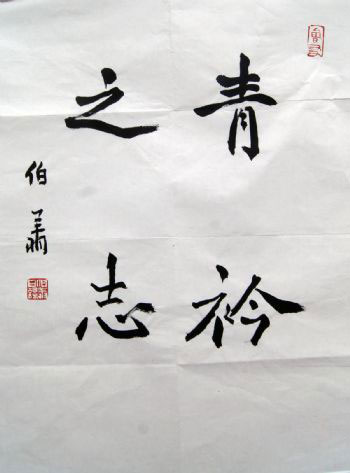 青衿
之志
伯萧